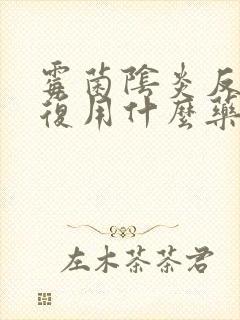 霉菌陰炎反
復用什麼藥
左木茶茶君